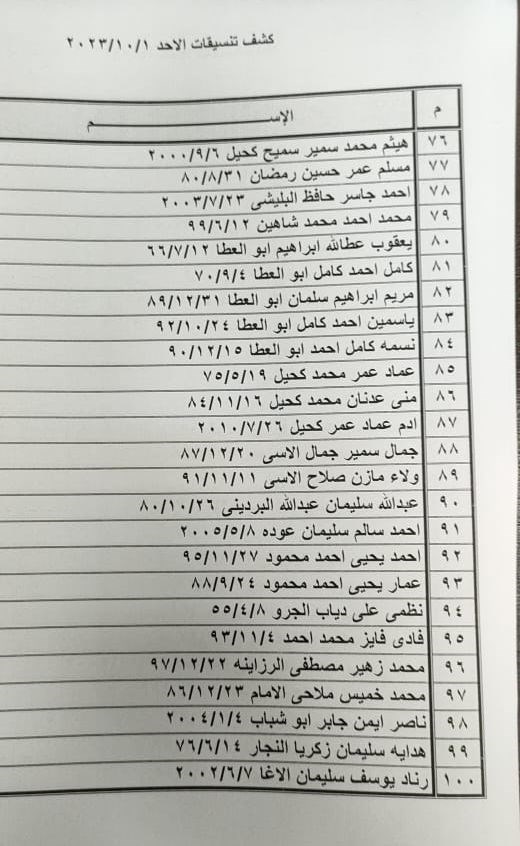 كشف تنسيقات الاحد ٢٠٢٣/١٠/١
م الإســـــــــم
٧٦ هيثم محمد سمير سميح كحيل ٢٠٠٠/٩/٦
٧٧ مسلم عمر حسين رمضان ٨٠/٨/٣١
٧٨ احمد جاسر حافظ البليشى ٢٠٠٣/٧/٢٣
٧٩ محمد احمد محمد شاهين ٩٩/٦/١٢
٨٠ يعقوب عطالله ابراهيم ابو العطا ٦٦/٧/١٢
٨١ كامل احمد كامل ابو العطا ٧٠/٩/٤
٨٢ مريم ابراهيم سلمان ابو العطا ٨٩/١٢/٣١
٨٣ ياسمين احمد كامل ابو العطا ٩٢/١٠/٢٤
٨٤ نسمه كامل احمد ابو العطا ٩٠/١٢/١٥
٨٥ عماد عمر محمد كحيل ٧٥/٥/١٩
٨٦ منى عدنان محمد كحيل ٨٤/١١/١٦
٨٧ ادم عماد عمر كحيل ٢٠١٠/٧/٢٦
٨٨ جمال سمير جمال الاسى ٨٧/١٢/٢٠
٨٩ ولاء مازن صلاح الاسى ٩١/١١/١١
٩٠ عبدالله سليمان عبدالله البردينى ٨٠/١٠/٢٦
٩١ احمد سالم سليمان عوده ٢٠٠٥/٥/٨
٩٢ احمد يحيى احمد محمود ٩٥/١١/٢٧
٩٣ عمار يحيى احمد محمود ٨٨/٩/٢٤
٩٤ نظمى على دياب الجرو ٥٥/٤/٨
٩٥ فادى فايز محمد احمد ٩٣/١١/٤
٩٦ محمد زهير مصطفى الرزاينه ٩٧/١٢/٢٢
٩٧ محمد خميس ملاحى الامام ٨٦/١٢/٢٣
٩٨ ناصر ايمن جابر ابو شباب ٢٠٠٤/١/٤
٩٩ هدايه سليمان زكريا النجار ٧٦/٦/١٤
١٠٠ رناد يوسف سليمان الاغا ٢٠٠٢/٦/٧